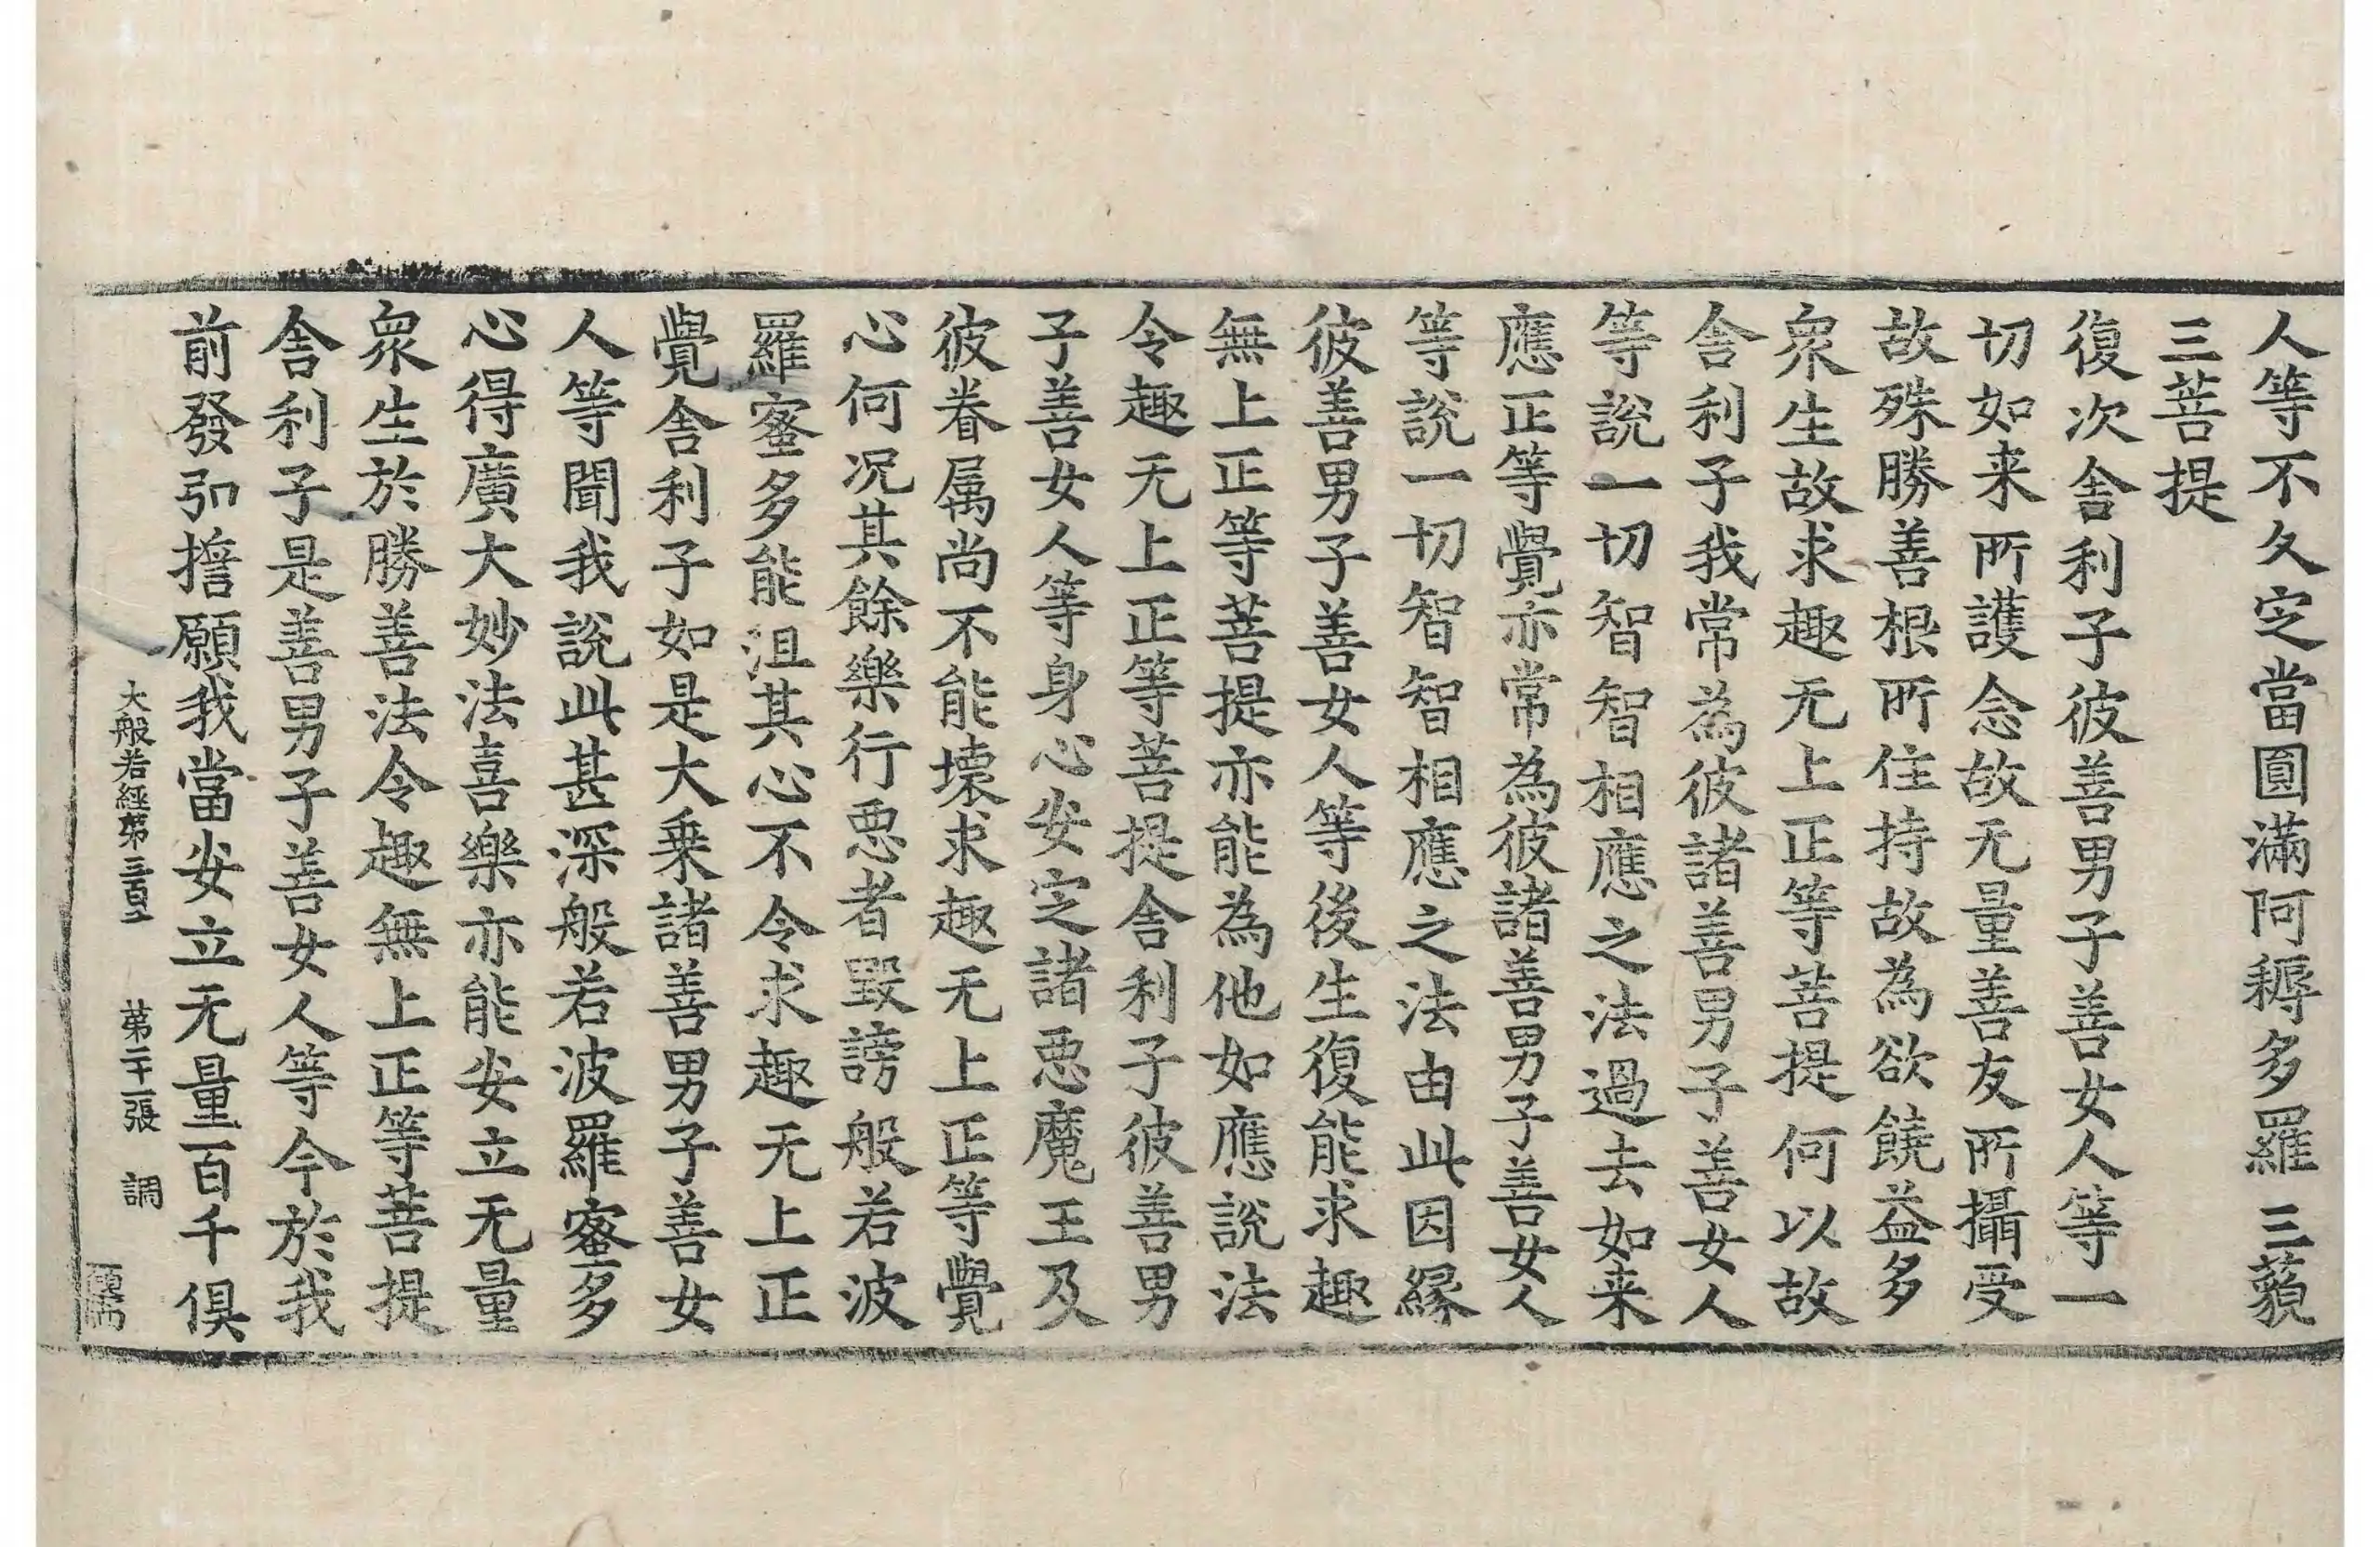 人等不久定當圓滿阿耨多羅三藐
三菩提
復次舎利子彼善男子善女人等一
切如来所護念故无量善友所攝受
故殊勝善根所住持故為欲饒益多
衆生故求趣无上正等菩提何以故
舎利子我常為彼諸善男子善女人
等說一切智智相應之法過去如来
應正等覺亦常為彼諸善男子善女人
等說一切智智相應之法由此因縁
彼善男子善女人等後生復能求趣
無上正等菩提亦能為他如應說法
令趣无上正等菩提舎利子彼善男
子善女人等身心安定諸悪魔王及
彼眷属尚不能壊求趣无上正等覺
心何况其餘樂行悪者毀謗般若波
羅蜜多能沮其心不令求趣无上正
覺舎利子如是大乗諸善男子善女
人等聞我說此甚深般若波羅蜜多
心得廣大妙法喜樂亦能安立无量
衆生於勝善法令趣無上正等菩提
舎利子是善男子善女人等今於我
前發弘擔願我當安立无量百千俱
大般若經苐三百二 苐二十二張 調